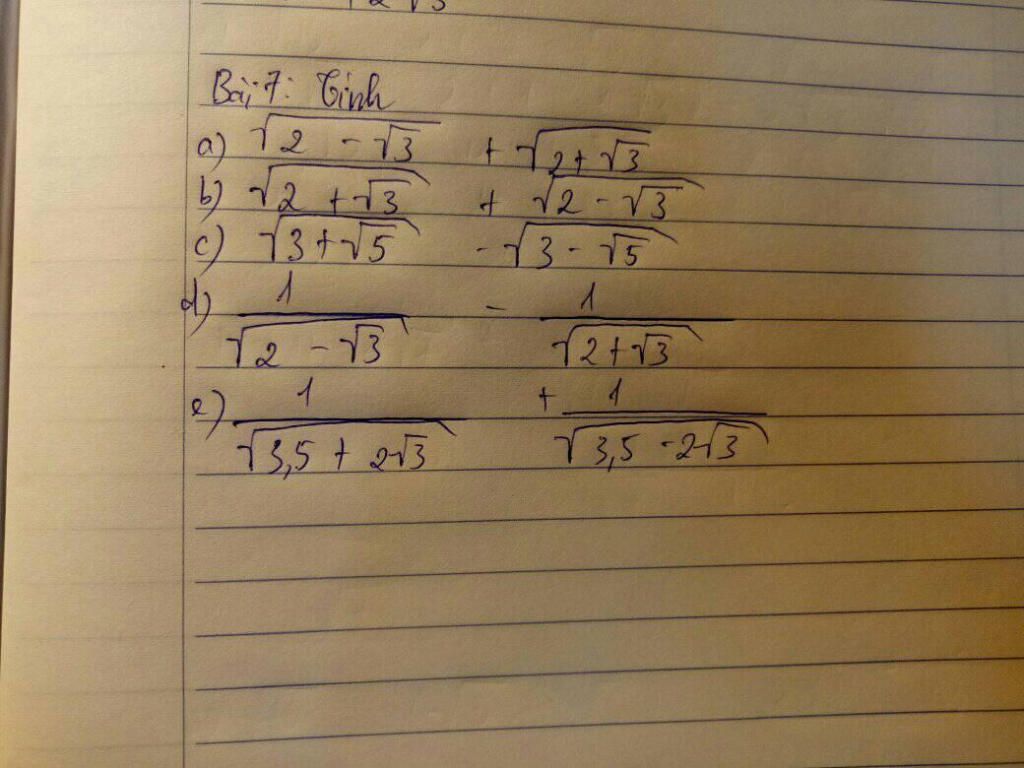 +2√3
Bài 7: Tính
a) √(2 - √3) + √(2 + √3)
b) √(2 + √3) + √(2 - √3)
c) √(3 + √5) - √(3 - √5)
d) 1/√(2 - √3) - 1/√(2 + √3)
e) 1/√(3,5 + 2√3) + 1/√(3,5 - 2√3)